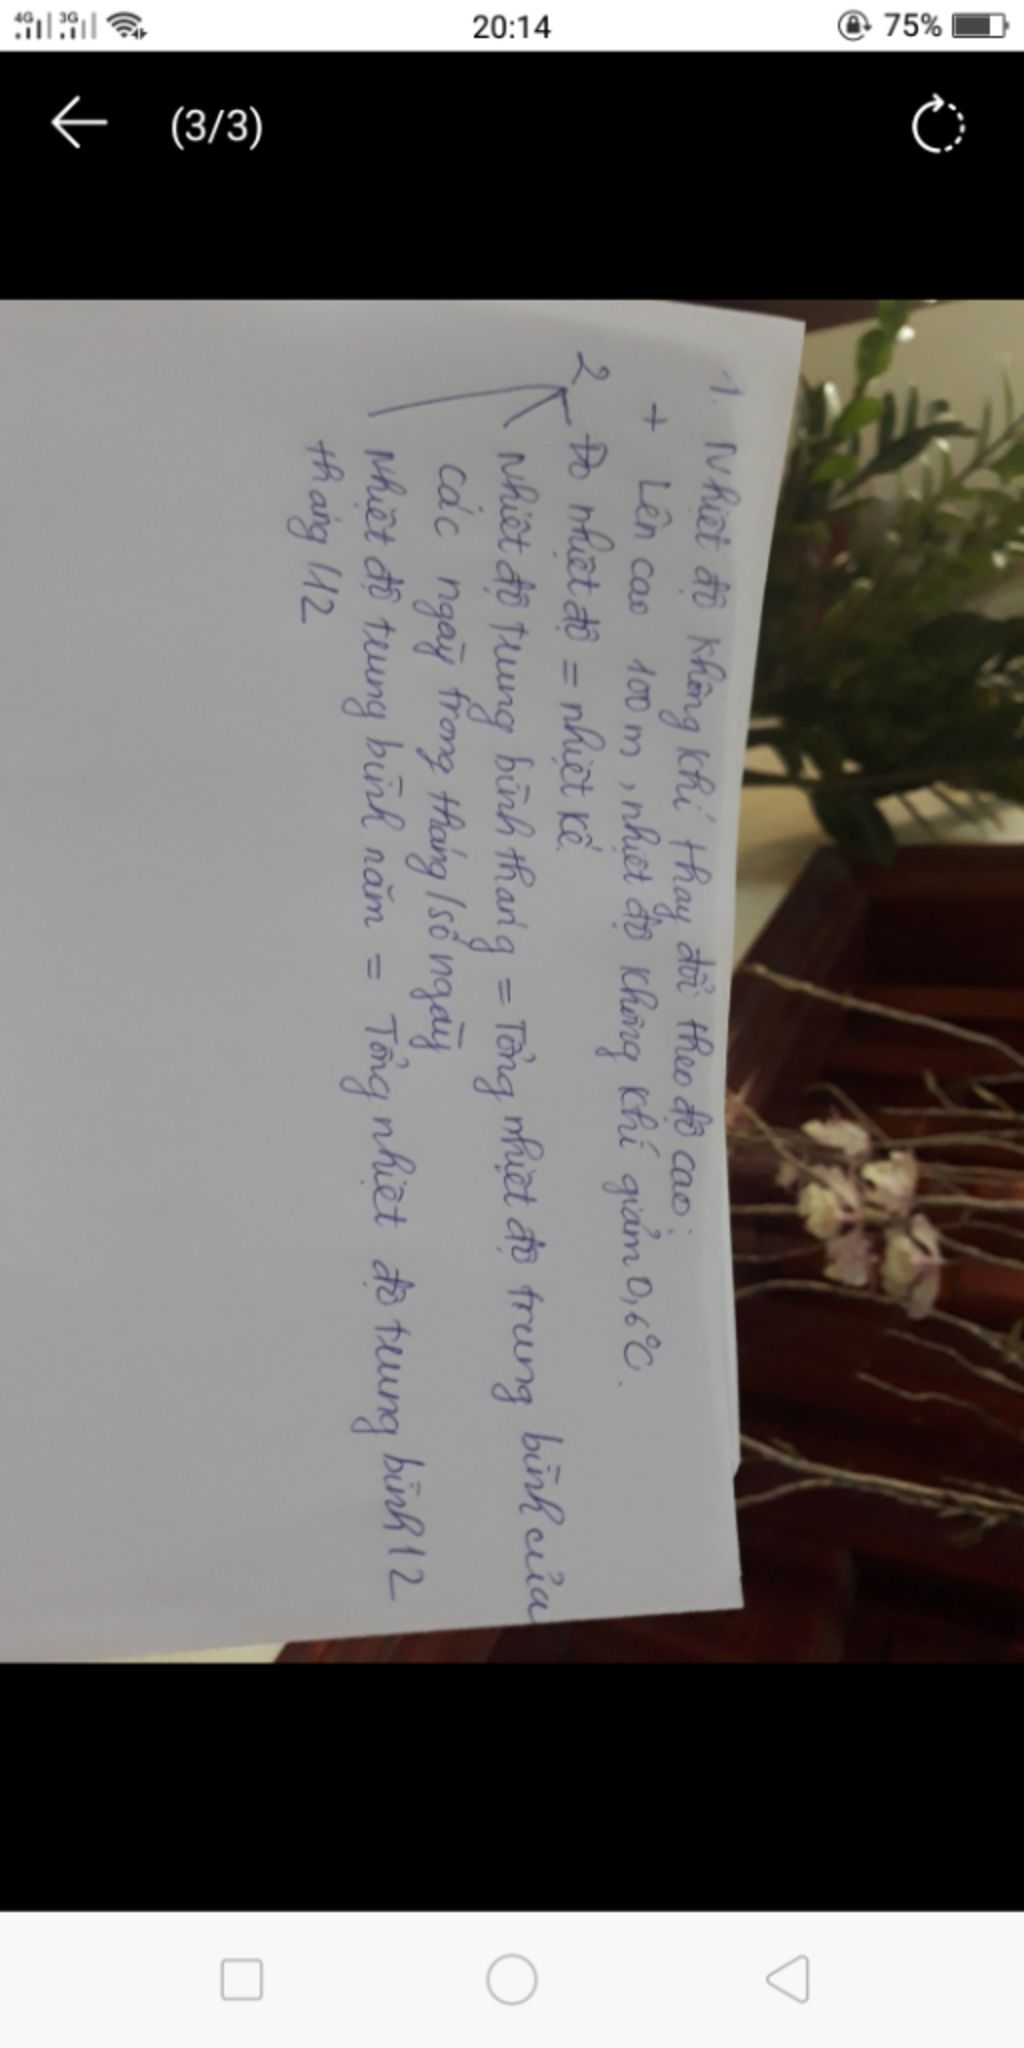 4G 3G 20:14 75%
(3/3)
1. Nhiệt độ không khí thay đổi theo độ cao:
+ Lên cao 100m, nhiệt độ không khí giảm 0,6°C.
2 Đo nhiệt độ = nhiệt kế
Nhiệt độ trung bình tháng = Tổng nhiệt độ trung bình của
các ngày trong tháng / số ngày
Nhiệt độ trung bình năm = Tổng nhiệt độ trung bình 12
tháng / 12